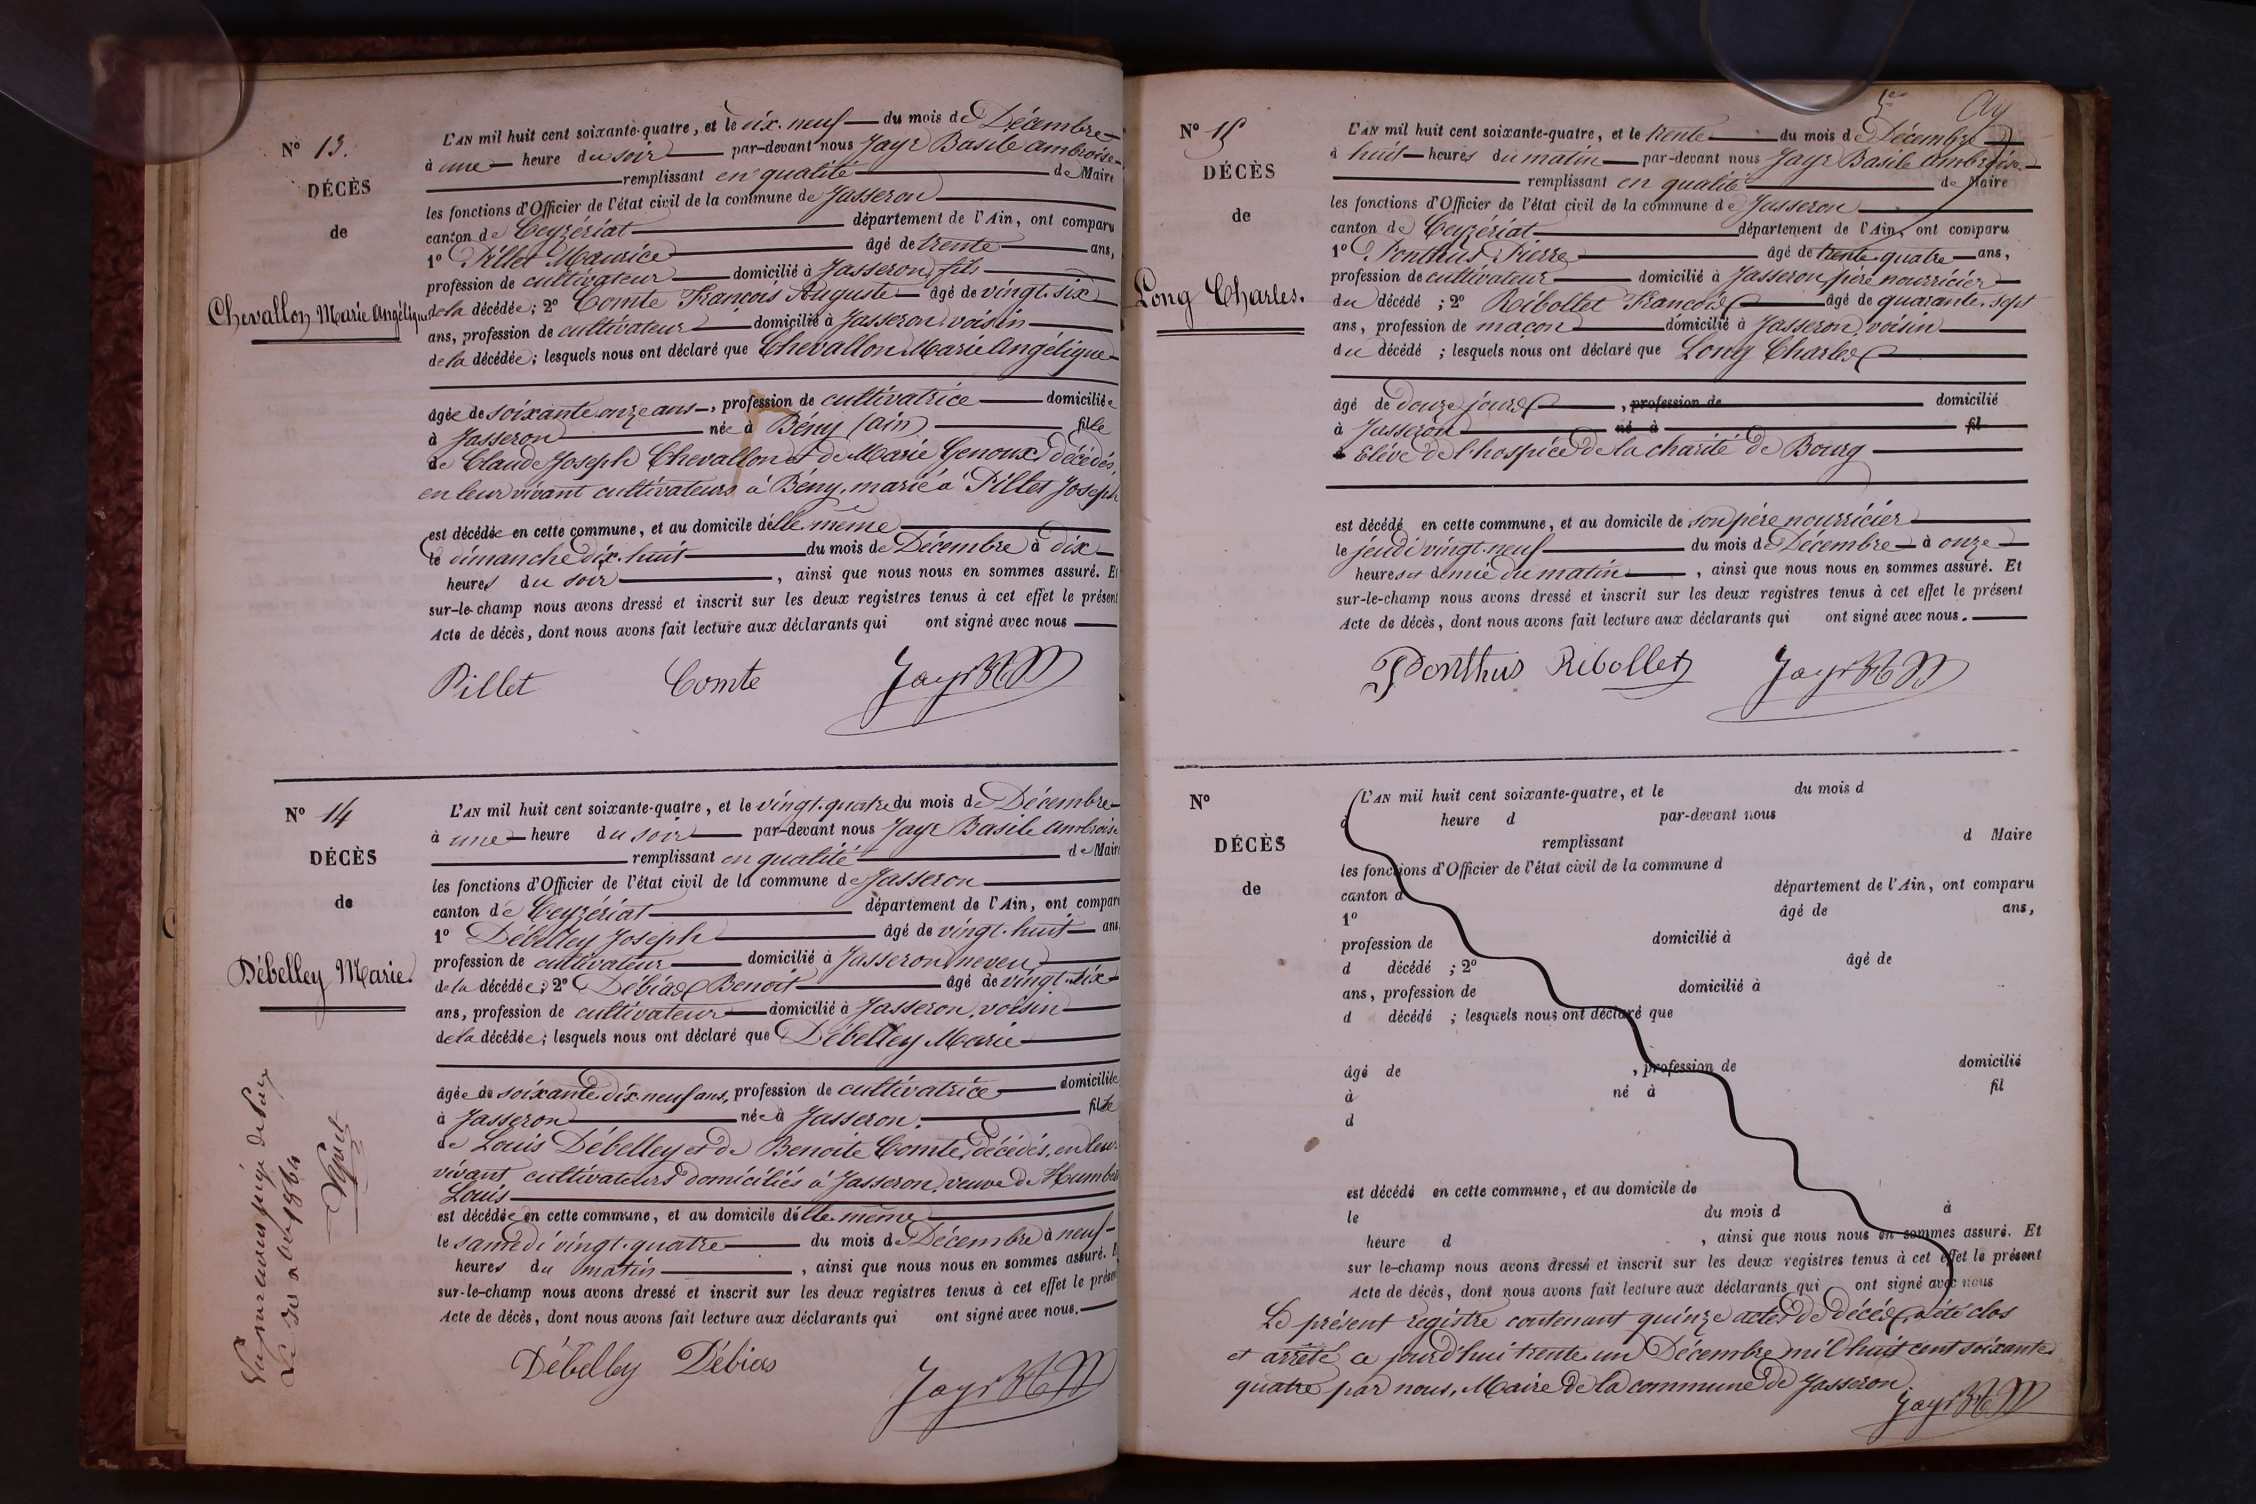 N° 13.
DÉCÈS
de
Chevallon Marie Angélique
L'AN mil huit cent soixante-quatre, et le dix-neuf du mois de Décembre
à une heure du soir par-devant nous Jayr Basile ambroise
remplissant en qualité de Maire
les fonctions d'Officier de l'état civil de la commune de Jasseron
canton de Ceyzériat département de l'Ain, ont comparu
1° Pillet Maurice âgé de trente ans,
profession de cultivateur domicilié à Jasseron, fils
de la décédée; 2° Comte François Auguste âgé de vingt-six
ans, profession de cultivateur domicilié à Jasseron voisin
de la décédée; lesquels nous ont déclaré que Chevallon Marie Angélique
âgée de soixante onze ans, profession de cultivatrice domiciliée
à Jasseron née à Bény (ain) fille
de Claude Joseph Chevallon et de Marie Genoux décédés,
en leur vivant cultivateurs à Bény, marié à Pillet Joseph
est décédée en cette commune, et au domicile d'elle même
le dimanche dix-huit du mois de Décembre à dix
heures du soir, ainsi que nous nous en sommes assuré. Et
sur-le-champ nous avons dressé et inscrit sur les deux registres tenus à cet effet le présent
Acte de décès, dont nous avons fait lecture aux déclarants qui ont signé avec nous
Pillet Comte Jayr
N° 14
DÉCÈS
de
Débelley Marie.
L'AN mil huit cent soixante-quatre, et le vingt-quatre du mois de Décembre
à une heure du soir par-devant nous Jayr Basile ambroise
remplissant en qualité de Maire
les fonctions d'Officier de l'état civil de la commune de Jasseron
canton de Ceyzériat département de l'Ain, ont comparu
1° Débelley Joseph âgé de vingt-huit ans,
profession de cultivateur domicilié à Jasseron, neveu
de la décédée; 2° Débias Benoit âgé de vingt-six
ans, profession de cultivateur domicilié à Jasseron, voisin
de la décédée; lesquels nous ont déclaré que Débelley Marie
âgée de soixante dix-neuf ans, profession de cultivatrice domiciliée
à Jasseron née à Jasseron. fille
de Louis Débelley et de Benoite Comte, décédés, en leur
vivant cultivateurs domiciliés à Jasseron, veuve de Humbert
Louis
est décédée en cette commune, et au domicile d'elle même
le samedi vingt-quatre du mois de Décembre à neuf
heures du matin, ainsi que nous nous en sommes assuré. Et
sur-le-champ nous avons dressé et inscrit sur les deux registres tenus à cet effet le présent
Acte de décès, dont nous avons fait lecture aux déclarants qui ont signé avec nous.
Débelley Débias Jayr
Vu par nous juge de Paix
1864
N° 15
DÉCÈS
de
Long Charles.
L'AN mil huit cent soixante-quatre, et le trente du mois de Décembre
à huit heures du matin par-devant nous Jayr Basile ambroise
remplissant en qualité de Maire
les fonctions d'Officier de l'état civil de la commune de Jasseron
canton de Ceyzériat département de l'Ain, ont comparu
1° Ponthus Pierre âgé de trente quatre ans,
profession de cultivateur domicilié à Jasseron, père nourricier
du décédé; 2° Ribollet François âgé de quarante-sept
ans, profession de maçon domicilié à Jasseron, voisin
du décédé; lesquels nous ont déclaré que Long Charles
âgé de douze jours, profession de domicilié
à Jasseron né à fil
d Elève de l'hospice de la charité de Bourg
est décédé en cette commune, et au domicile de son père nourricier
le jeudi vingt-neuf du mois de Décembre à onze
heures et demie du matin, ainsi que nous nous en sommes assuré. Et
sur-le-champ nous avons dressé et inscrit sur les deux registres tenus à cet effet le présent
Acte de décès, dont nous avons fait lecture aux déclarants qui ont signé avec nous.
Ponthus Ribollet Jayr
N°
DÉCÈS
de
L'AN mil huit cent soixante-quatre, et le du mois d
à heure d par-devant nous
remplissant d Maire
les fonctions d'Officier de l'état civil de la commune d
canton d département de l'Ain, ont comparu
1° âgé de ans,
profession de domicilié à
d décédé ; 2° âgé de
ans, profession de domicilié à
d décédé ; lesquels nous ont déclaré que
âgé de , profession de domicilié
à né à fil
d
est décédé en cette commune, et au domicile de
le du mois d à
heure d , ainsi que nous nous en sommes assuré. Et
sur le-champ nous avons dressé et inscrit sur les deux registres tenus à cet effet le présent
Acte de décès, dont nous avons fait lecture aux déclarants qui ont signé avec nous
Le présent registre contenant quinze actes de décès, a été clos
et arrêté ce jourd'hui trente un Décembre mil huit cent soixante
quatre par nous, Maire de la commune de Jasseron,
Jayr